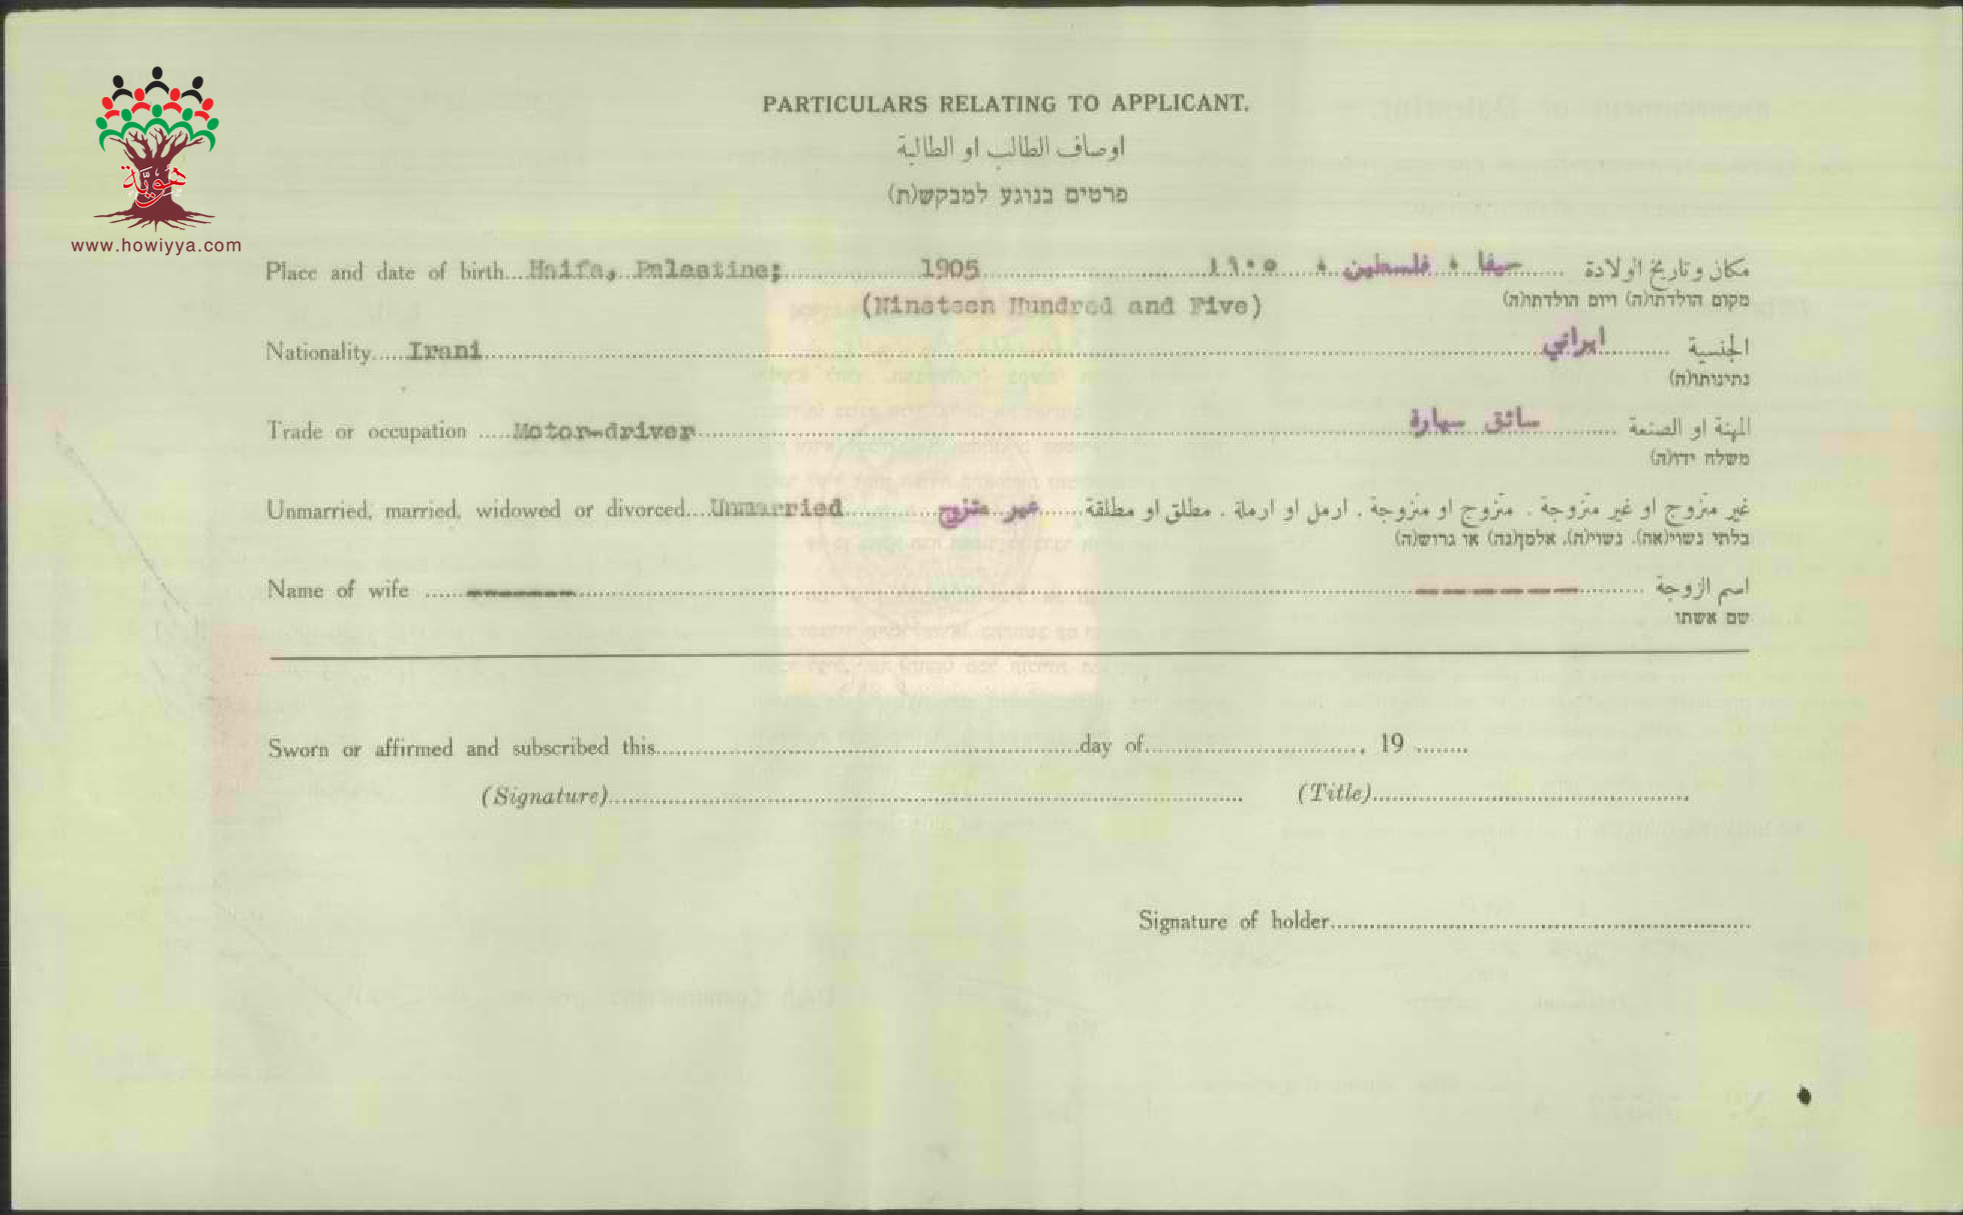 هوية
www.howiyya.com
PARTICULARS RELATING TO APPLICANT.
اوصاف الطالب او الطالبة
פרטים בנוגע למבקש(ת)
Place and date of birth...Haifa, Palestine; 1905 ١٩٠٥ ، فلسطين ، حيفا مكان وتاريخ الولادة
(Nineteen Hundred and Five) מקום הולדתו(ה) ויום הולדתו(ה)
Nationality.....Irani ايراني الجنسية
נתינותו(ה)
Trade or occupation .....Motor-driver سائق سيارة المهنة او الصنعة
משלח ידו(ה)
Unmarried, married, widowed or divorced....Unmarried غير متزوج غير متزوج او غير متزوجة . متزوج او متزوجة . ارمل او ارملة . مطلق او مطلقة
בלתי נשוי(אה). נשוי(ה). אלמן(נה) או גרוש(ה)
Name of wife ......------- ------ اسم الزوجة
שם אשתו
Sworn or affirmed and subscribed this.....day of....., 19 ........
(Signature)..... (Title).....
Signature of holder.....